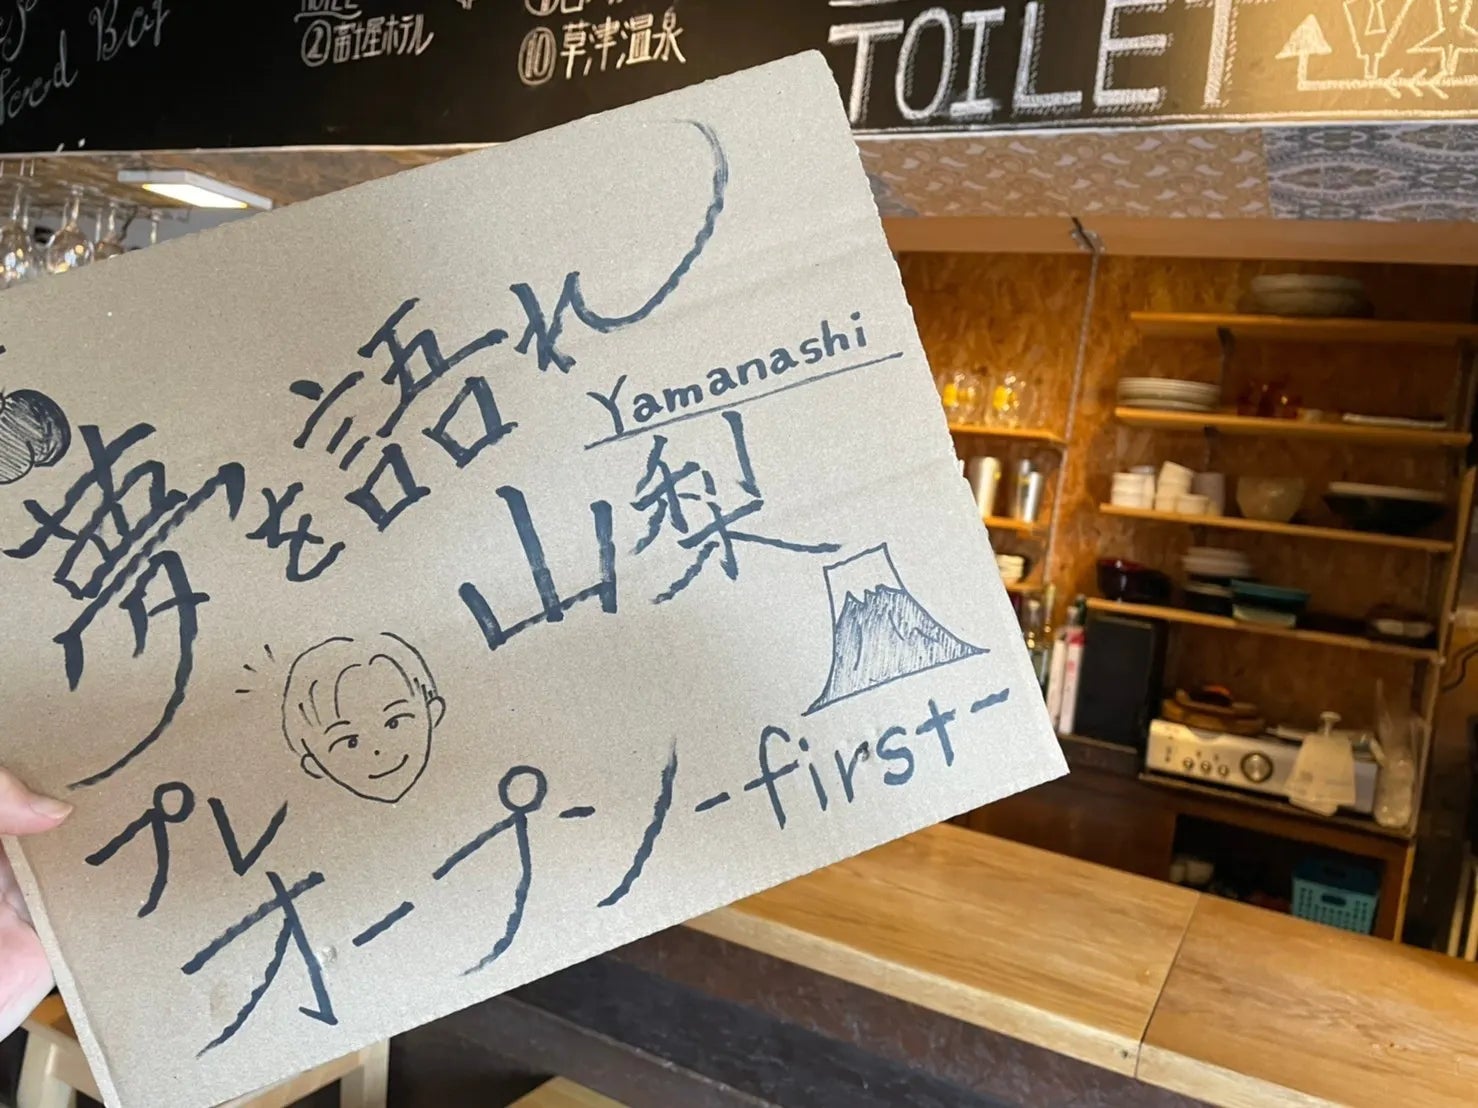 Bar
②富士屋ホテル
⑩草津温泉
TOILET
夢を語れ
Yamanashi
山梨
プレ
オープン-first-